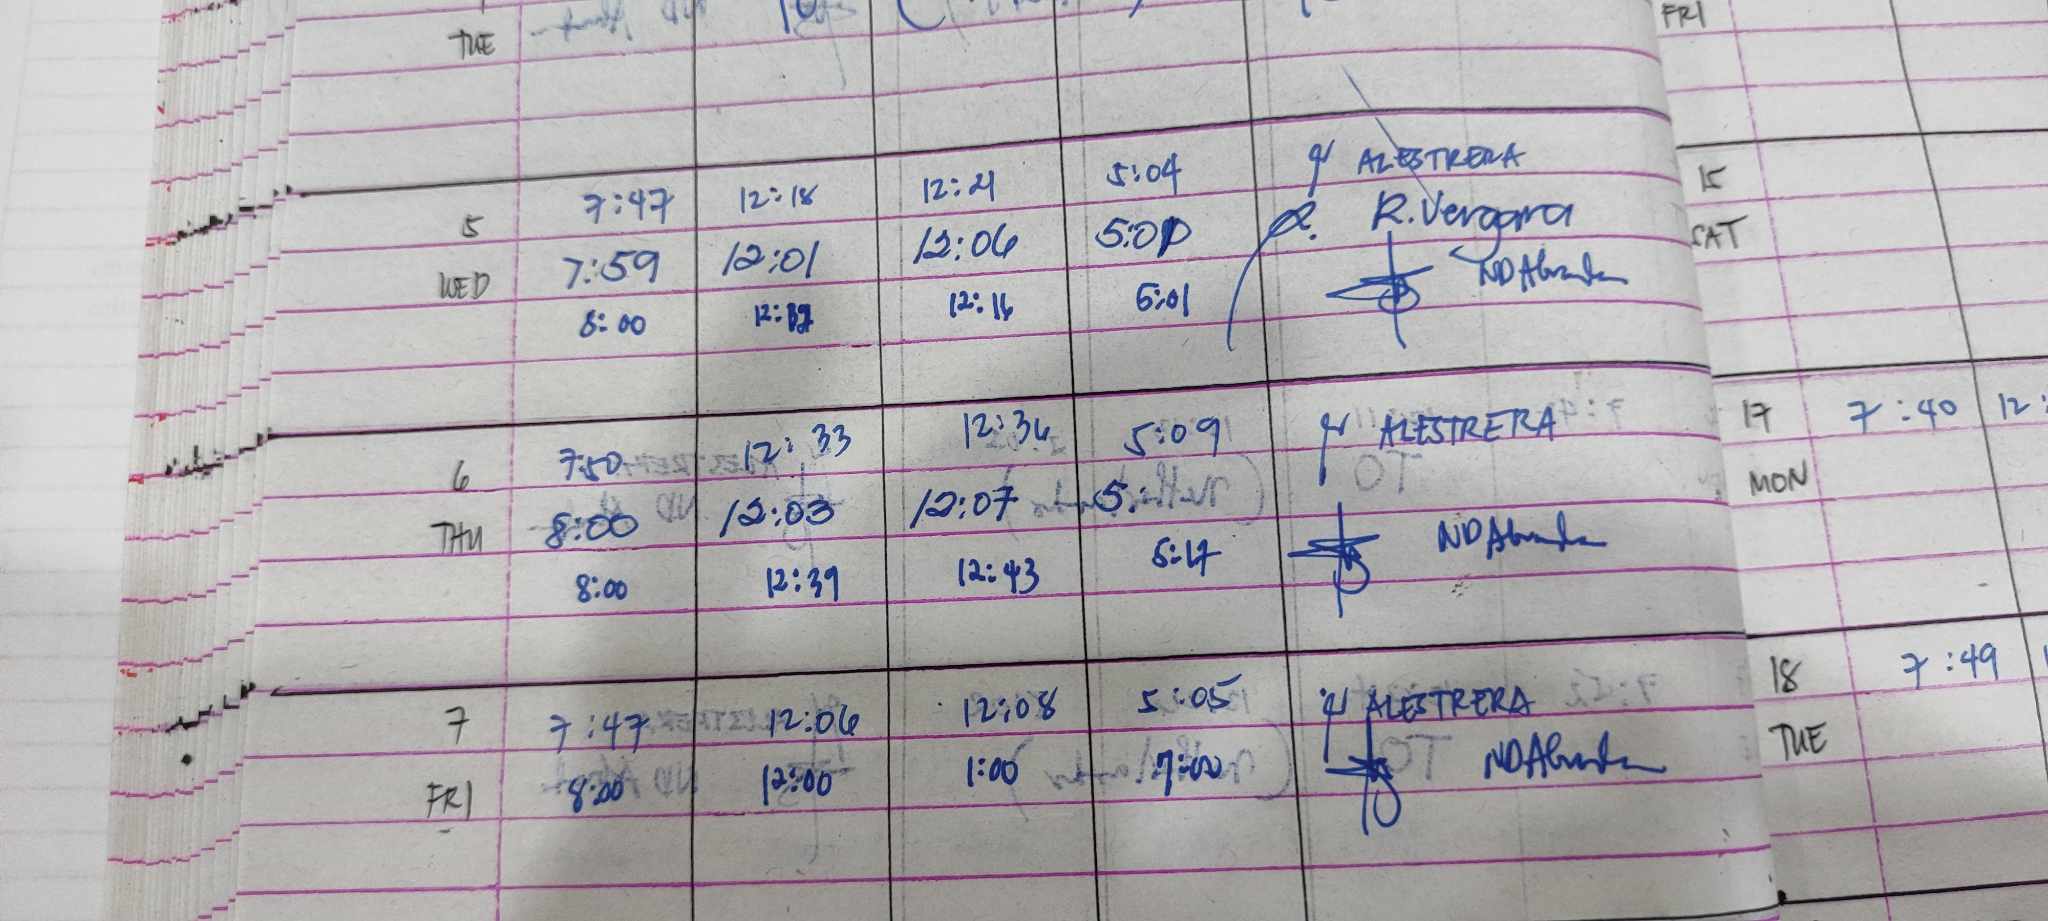 TUE
FRI
5 7:47 12:18 12:21 5:04 ALESTRERA
WED 7:59 12:01 12:06 5:00 R. Vergara
8:00 12:14 5:01 ND
15
SAT
6 7:50 12:33 12:34 5:09 ALESTRERA
THU 8:00 12:03 12:07 5: ND
8:00 12:39 12:43 5:17
17 7:40 12:
MON
7 7:47 12:06 12:08 5:05 ALESTRERA
FRI 8:00 12:00 1:00 7:00 ND
18 7:49
TUE